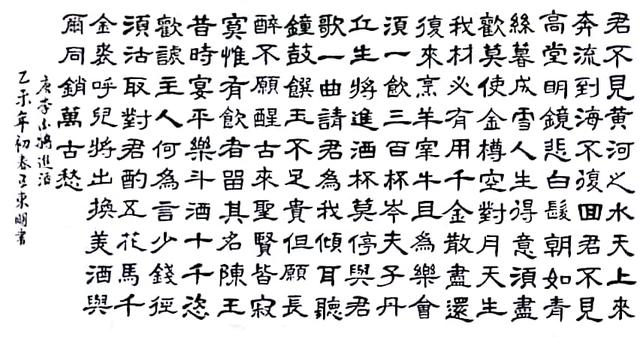 君不見黃河之水天上來
奔流到海不復回君不見
高堂明鏡悲白髮朝如青
絲暮成雪人生得意須盡
歡莫使金樽空對月天生
我材必有用千金散盡還
復來烹羊宰牛且為樂會
須一飲三百杯岑夫子丹
丘生將進酒杯莫停與君
歌一曲請君為我傾耳聽
鐘鼓饌玉不足貴但願長
醉不願醒古來聖賢皆寂
寞惟有飲者留其名陳王
昔時宴平樂斗酒十千恣
歡謔主人何為言少錢徑
須沽取對君酌五花馬千
金裘呼兒將出換美酒與
爾同銷萬古愁
唐李白將進酒
乙未年初春東明書